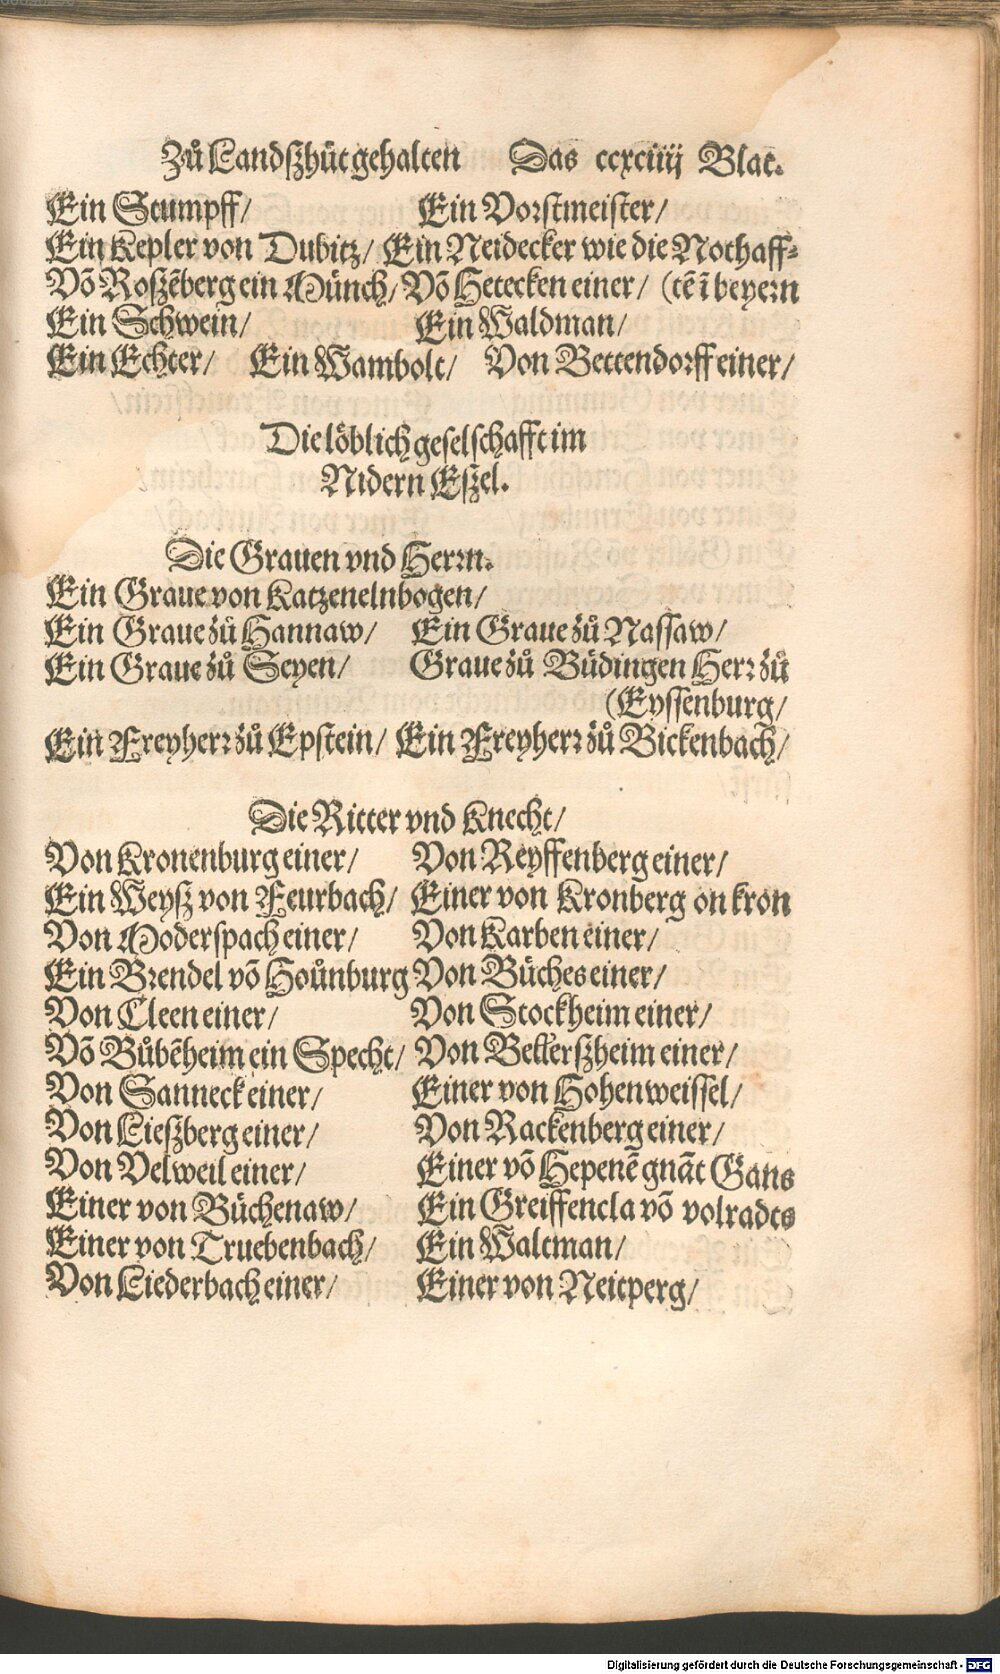 Zů Landſzhůt gehalten Das ccxciiij Blat.
Ein Stumpff/ Ein Vorstmeister/
Ein Kepler von Dubitz/ Ein Neidecker wie die Nothaff⸗
Võ Roſzēberg ein Münch/ Võ Hetecken einer/ (tē ī beyern
Ein Schwein/ Ein Waldman/
Ein Echter/ Ein Wambolt/ Von Bettendorff einer/
Die löblich geselschafft im
Nidern Eſzel.
Die Grauen vnd Herrn.
Ein Graue von Katzenelnbogen/
Ein Graue zů Hannaw/ Ein Graue zů Nassaw/
Ein Graue zů Seyen/ Graue zů Büdingen Herr zů
(Eyssenburg/
Ein Freyherr zů Epstein/ Ein Freyherr zů Bickenbach/
Die Ritter vnd Knecht/
Von Kronenburg einer/ Von Reyffenberg einer/
Ein Weyſz von Feurbach/ Einer von Kronberg on kron
Von Moderspach einer/ Von Karben einer/
Ein Brendel võ Hoůnburg Von Büches einer/
Von Cleen einer/ Von Stockheim einer/
Võ Bůbēheim ein Specht/ Von Bellerſzheim einer/
Von Sanneck einer/ Einer von Hohenweissel/
Von Lieſzberg einer/ Von Rackenberg einer/
Von Velweil einer/ Einer võ Hepenē gnāt Gans
Einer von Büchenaw/ Ein Greiffencla võ volradts
Einer von Truebenbach/ Ein Waltman/
Von Liederbach einer/ Einer von Neitperg/
Digitalisierung gefördert durch die Deutsche Forschungsgemeinschaft - DFG